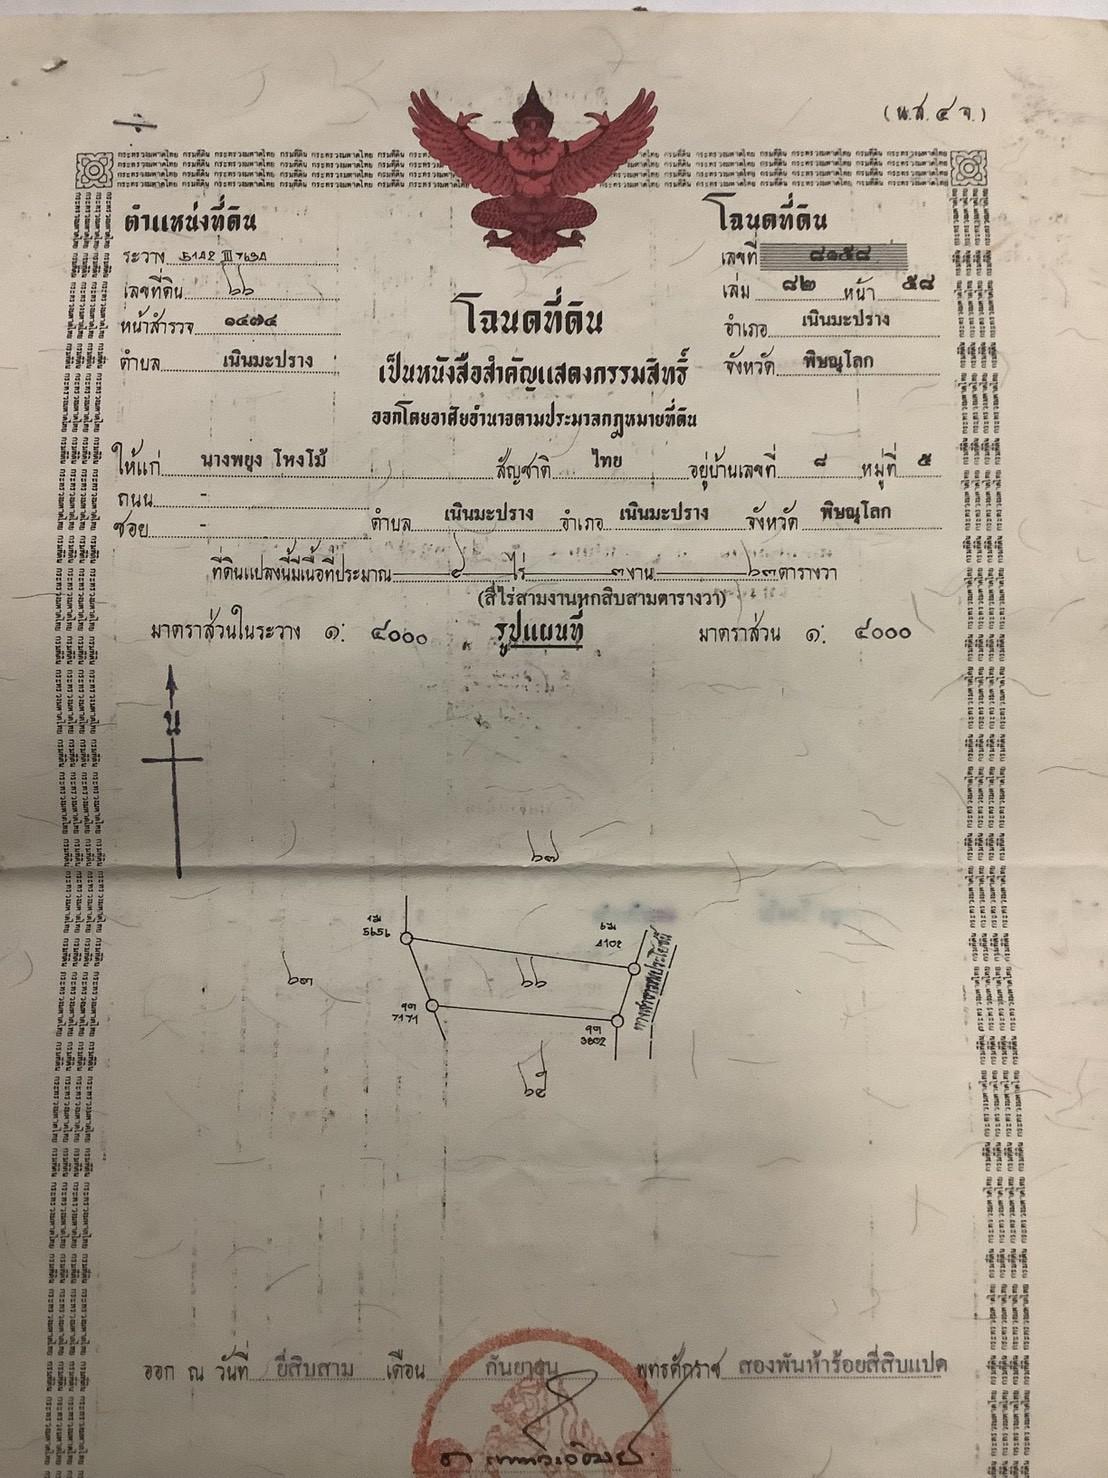 (น.ส. ๔ จ.)
ตำแหน่งที่ดิน
ระวาง 5142 III 7634
เลขที่ดิน ๖๖
หน้าสำรวจ ๑๔๗๔
ตำบล เนินมะปราง
โฉนดที่ดิน
เลขที่ ๘๑๕๘
เล่ม ๘๒ หน้า ๕๘
อำเภอ เนินมะปราง
จังหวัด พิษณุโลก
โฉนดที่ดิน
เป็นหนังสือสำคัญแสดงกรรมสิทธิ์
ออกโดยอาศัยอำนาจตามประมวลกฎหมายที่ดิน
ให้แก่ นางพยุง โหงโม้ สัญชาติ ไทย อยู่บ้านเลขที่ ๘ หมู่ที่ ๕
ถนน -
ซอย - ตำบล เนินมะปราง อำเภอ เนินมะปราง จังหวัด พิษณุโลก
ที่ดินแปลงนี้มีเนื้อที่ประมาณ ๔ ไร่ ๓ งาน ๖๓ ตารางวา
(สี่ไร่สามงานหกสิบสามตารางวา)
มาตราส่วนในระวาง ๑: ๔๐๐๐ รูปแผนที่ มาตราส่วน ๑: ๔๐๐๐
น
๖๗
5656
4102
๖๓
๖๖
ทางสาธารณประโยชน์
7171
3802
๖๕
ออก ณ วันที่ ยี่สิบสาม เดือน กันยายน พุทธศักราช สองพันห้าร้อยสี่สิบแปด